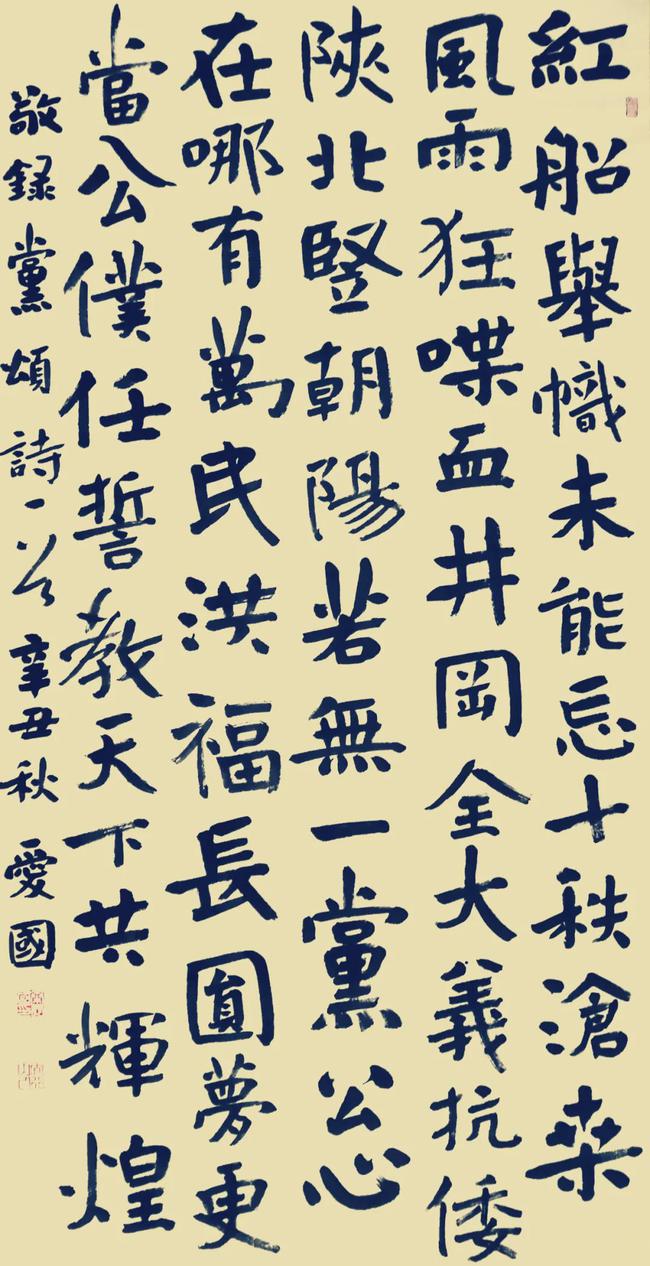 紅船舉幟未能忘十秩滄桒
風雨狂喋血井岡全大義抗倭
陝北竪朝陽若無一黨公心
在哪有萬民洪福長圓夢更
當公僕任誓教天下共輝煌
敬録黨頌詩一首辛丑秋愛國